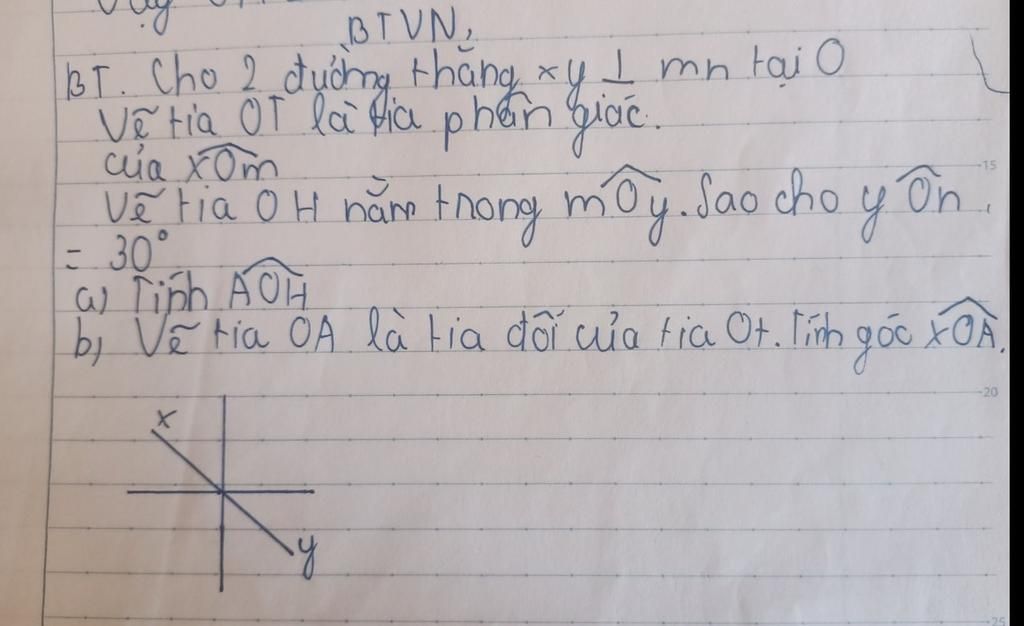 BTVN,
BT. Cho 2 đường thẳng xy ⊥ mn tại O
Vẽ tia OT là tia phân giác.
của xOm
Vẽ tia OH nằm trong mOy. Sao cho y On.
= 30°
a) Tính AOH
b) Vẽ tia OA là tia đối của tia Ot. Tính góc xOA.
15
20
x
y
25